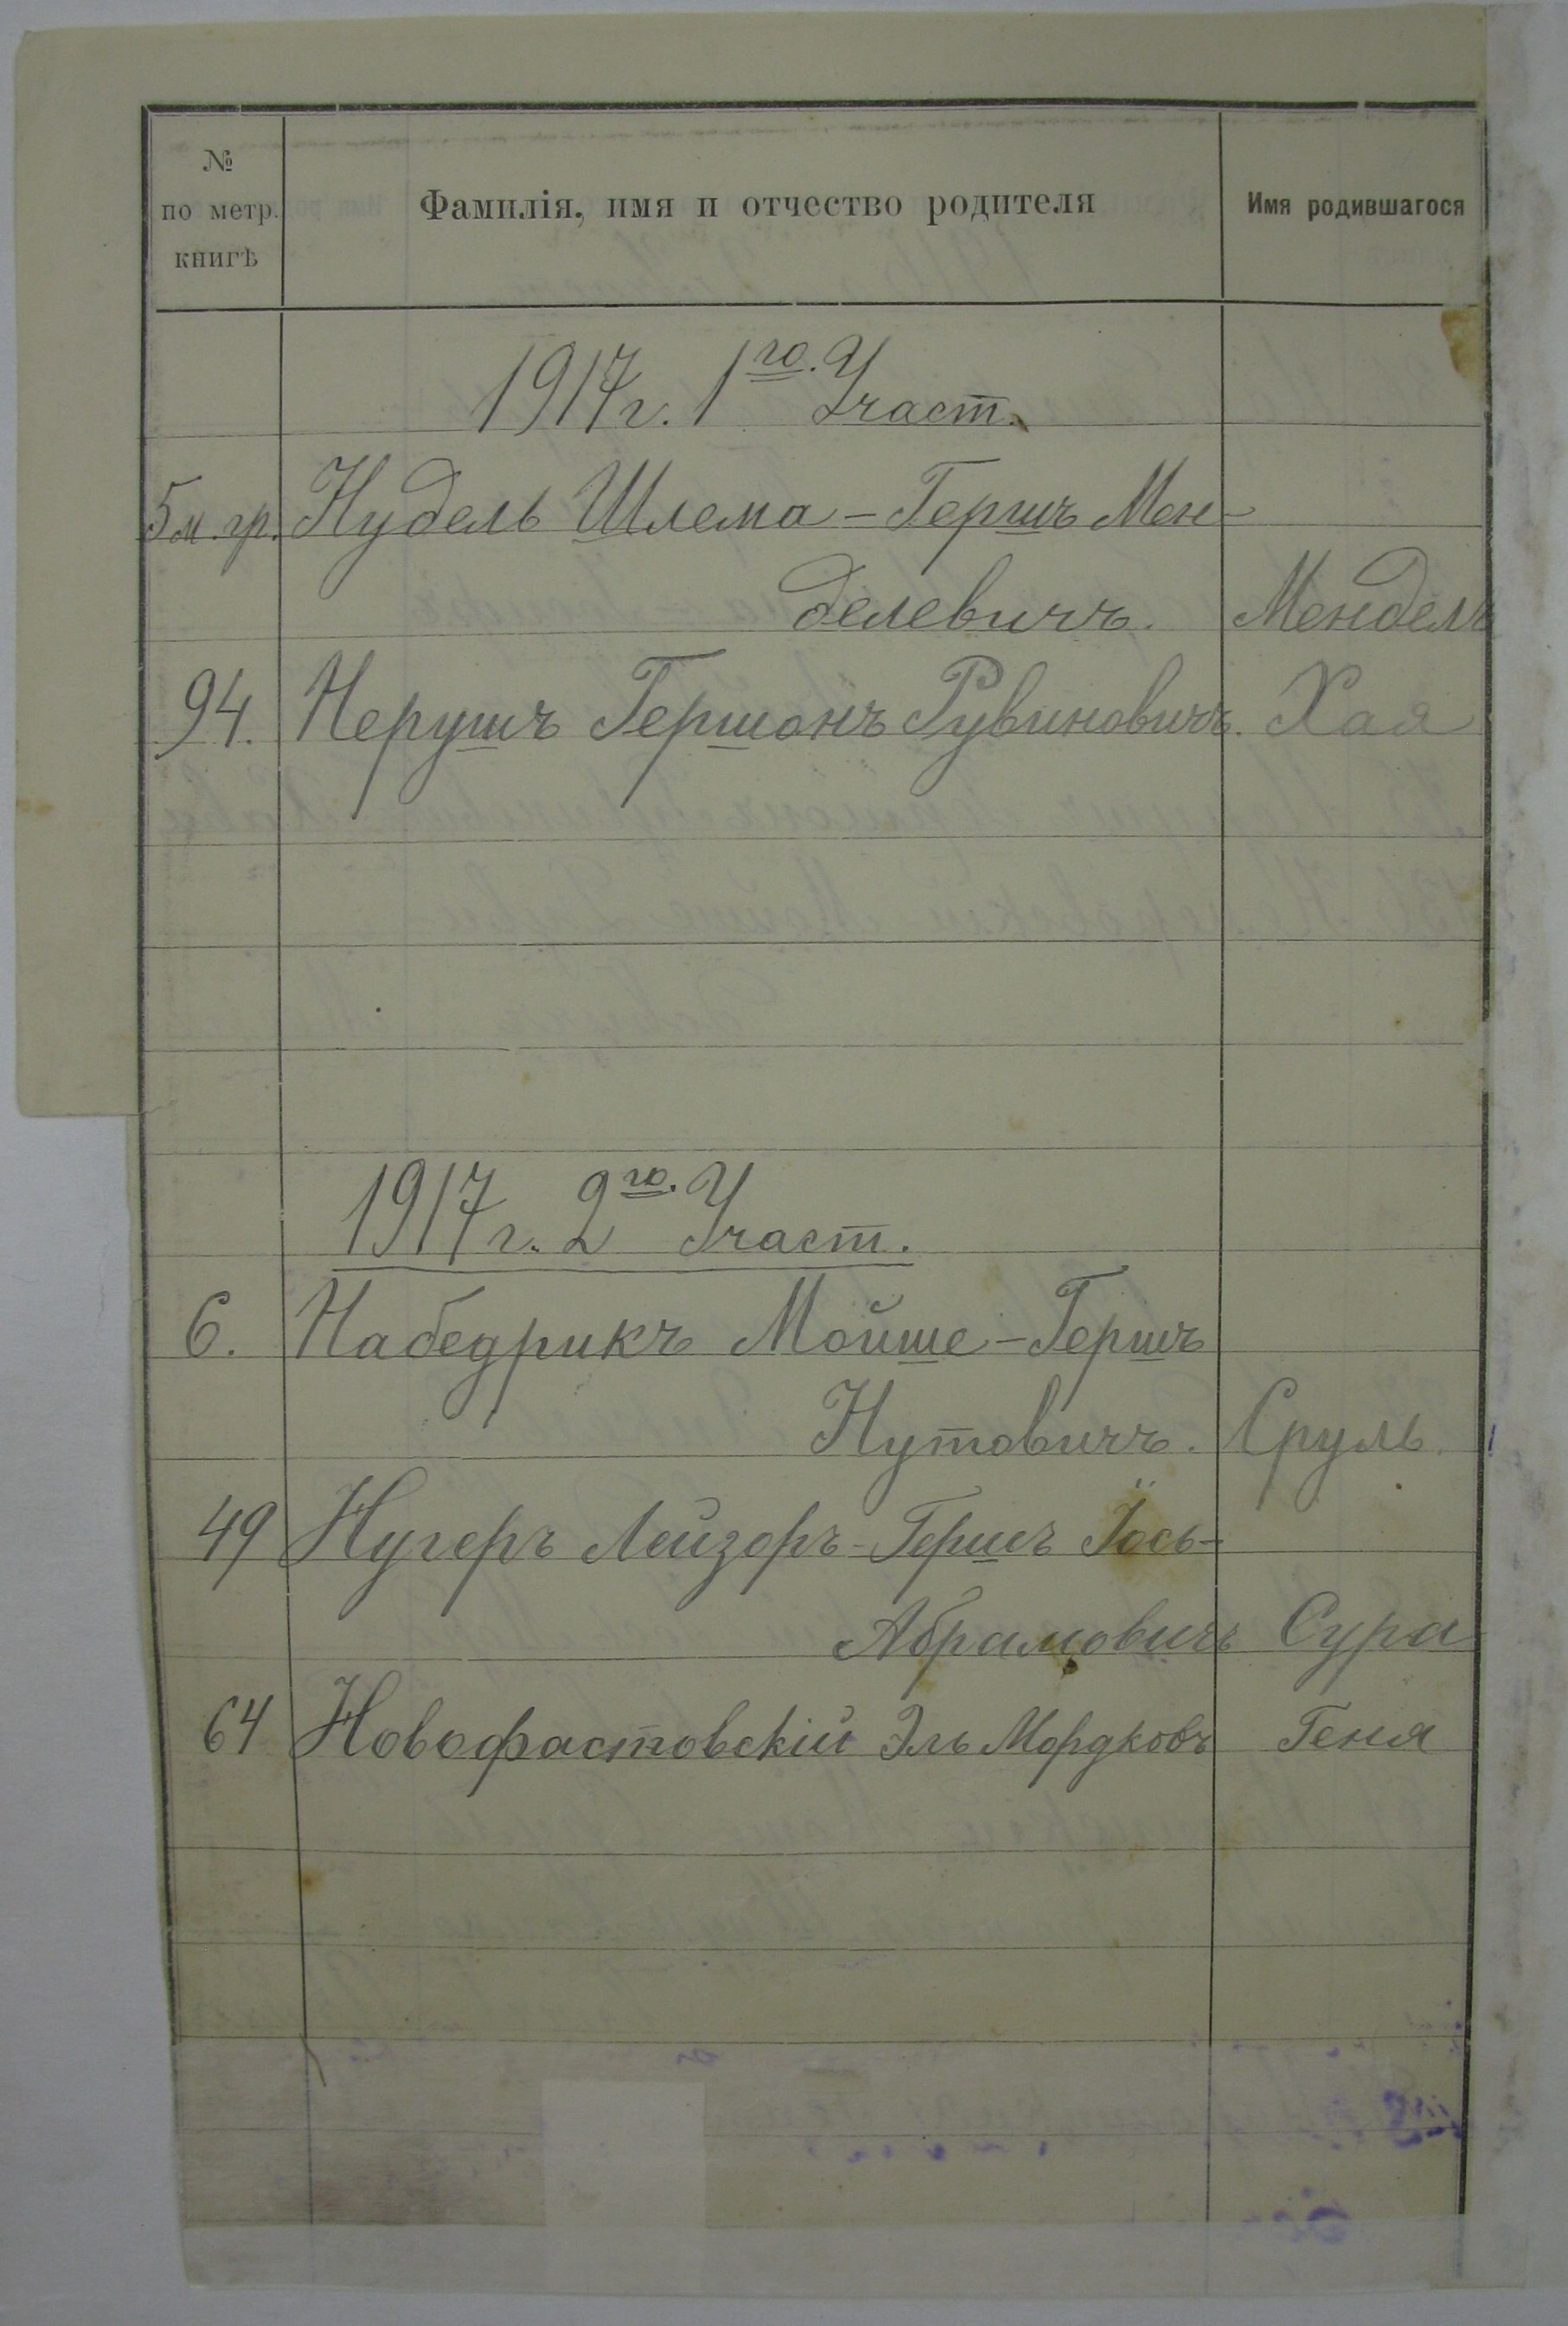 № по метр. книгѣ Фамилія, имя и отчество родителя Имя родившагося
1917 г. 1го. Участ.
5 м. гр. Нудель Шлема-Гершъ Мен-
делевичъ. Мендель
94. Нерушъ Гершонъ Рувиновичъ. Хая
1917 г. 2го. Участ.
6. Набедрикъ Мойше-Гершъ
Нутовичъ. Сруль.
49 Нугеръ Лейзоръ-Гершъ Іось-
Абрамовичъ Сура
64 Новофастовскій Эль Мордковъ Геня